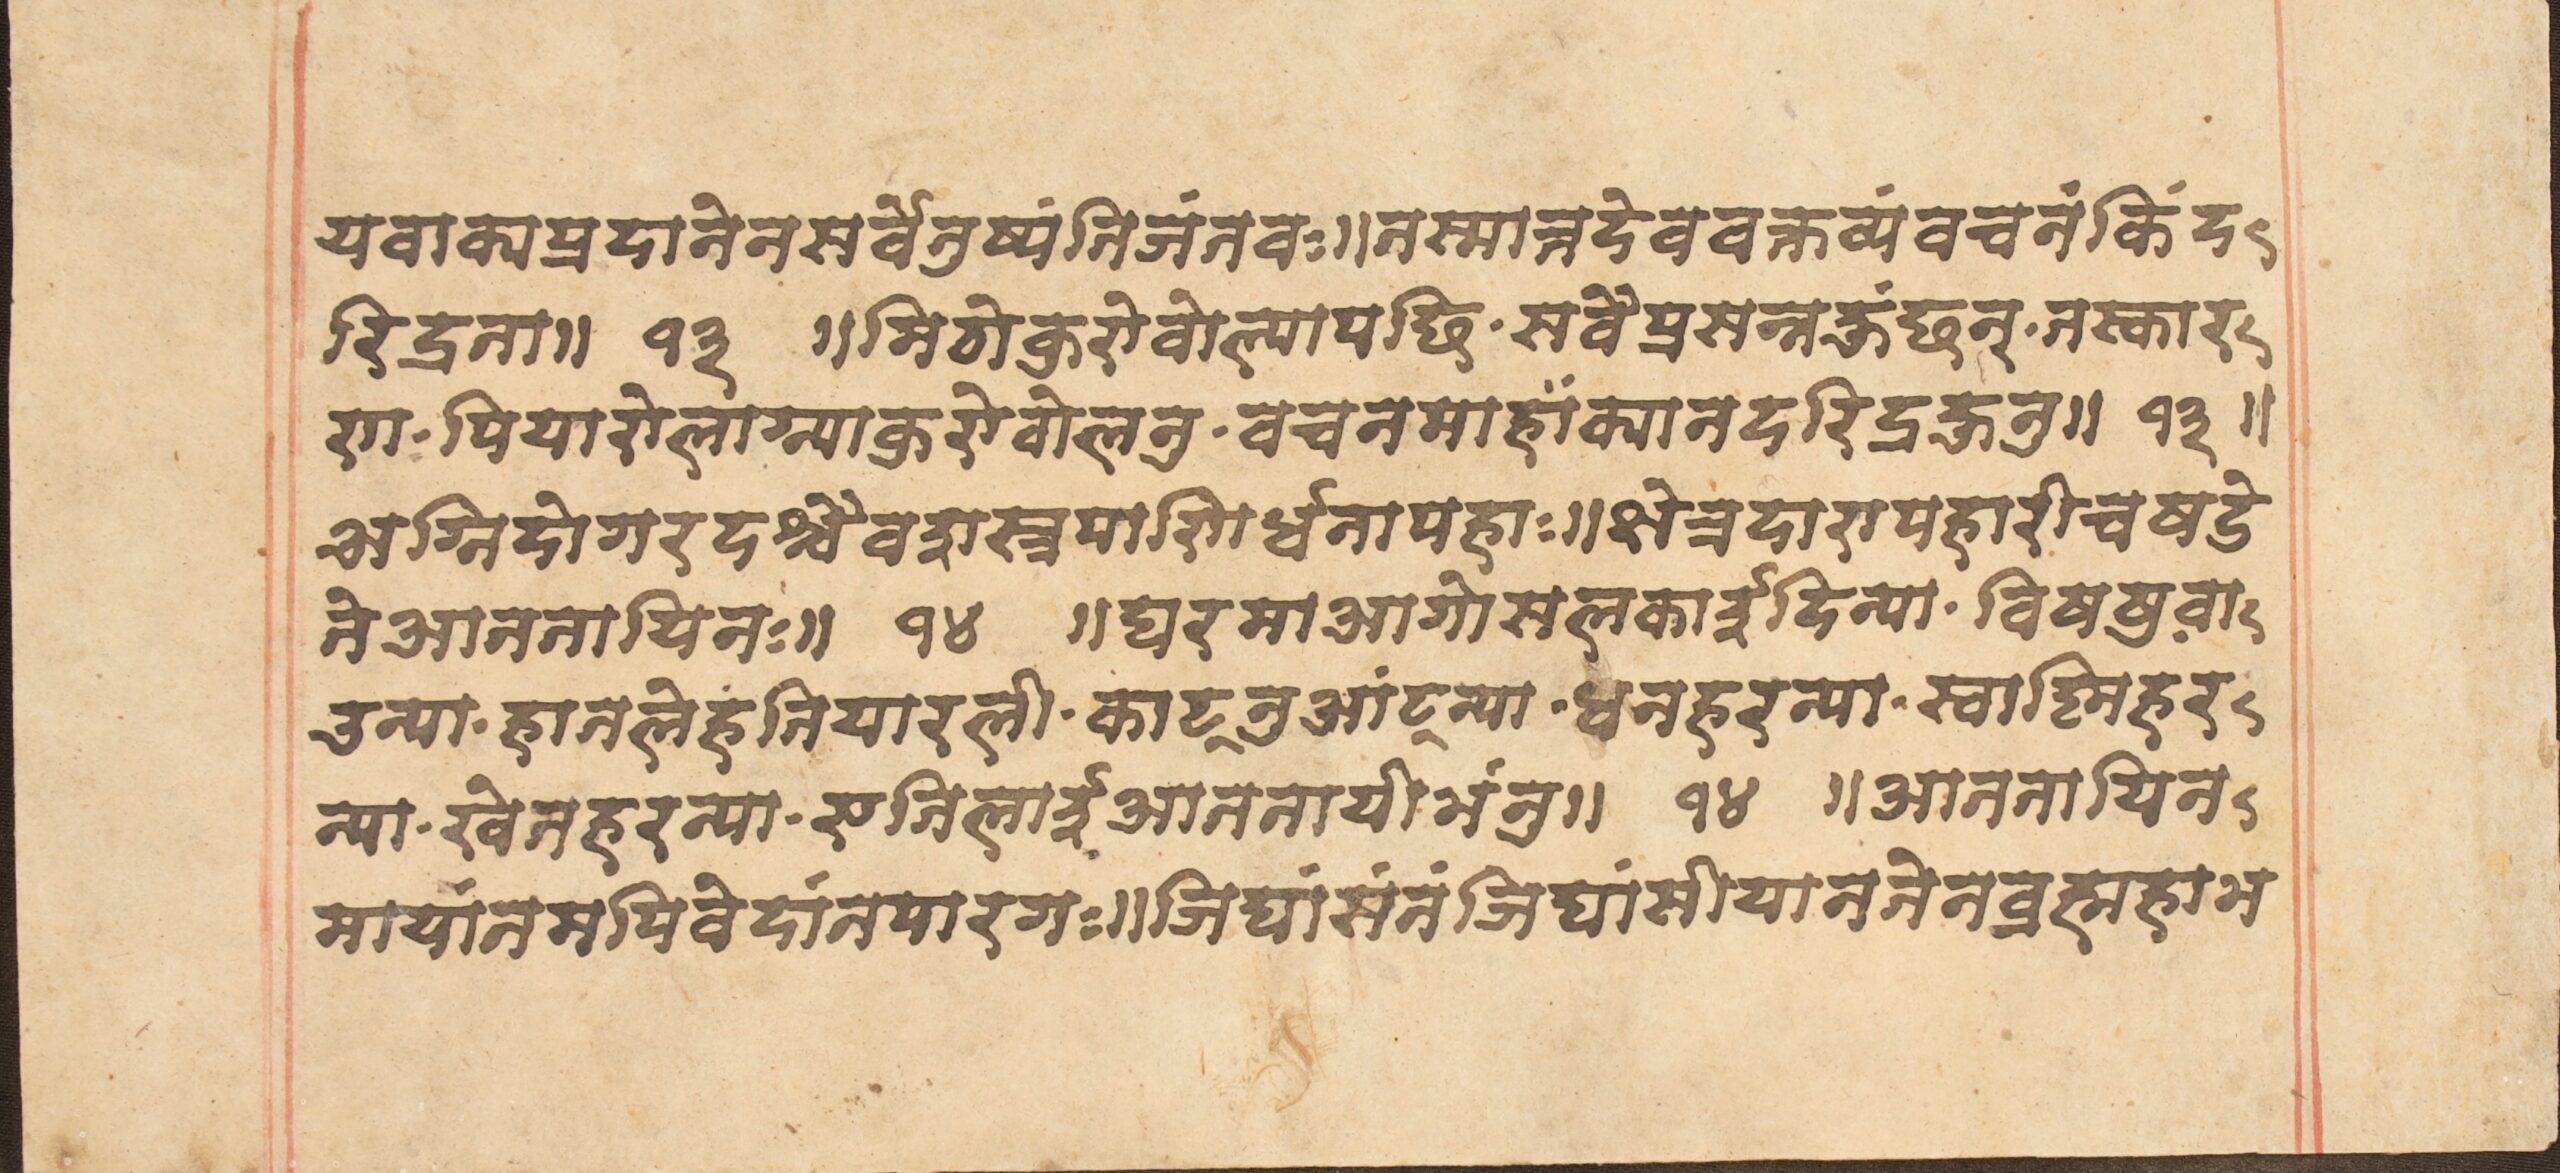 यवाक्यप्रदानेनसर्वेतुष्यंतिजंतवः॥तस्मात्तदेववक्तव्यंवचनेकिंद
रिद्रता॥ १३ ॥मिठोकुरोवोल्यापछि·सवैप्रसन्नहुंछन्·तस्कार
रण·पियारोलाग्न्याकुरोवोलनु·वचनमाहाँक्यानदरिद्रहुनु॥ १३॥
अग्निदोगरदश्चैवशस्त्रपाणिर्धनापहाः॥क्षेत्रदारापहारीचषडे
तेआततायिनः॥ १४ ॥घरमाआगोसलकाईदिन्या·विषषुवा
उन्या·हातलेहतियारली·काट्नुआंट्न्या·धनहरन्या·स्वास्निहर
न्या·खेतहरन्या·एतिलाईआततायीभंनु॥ १४ ॥आततायिन
मायांतमपिवेदांतपारगः॥जिघांसंतंजिघांसीयान्नतेनब्रह्महाभ